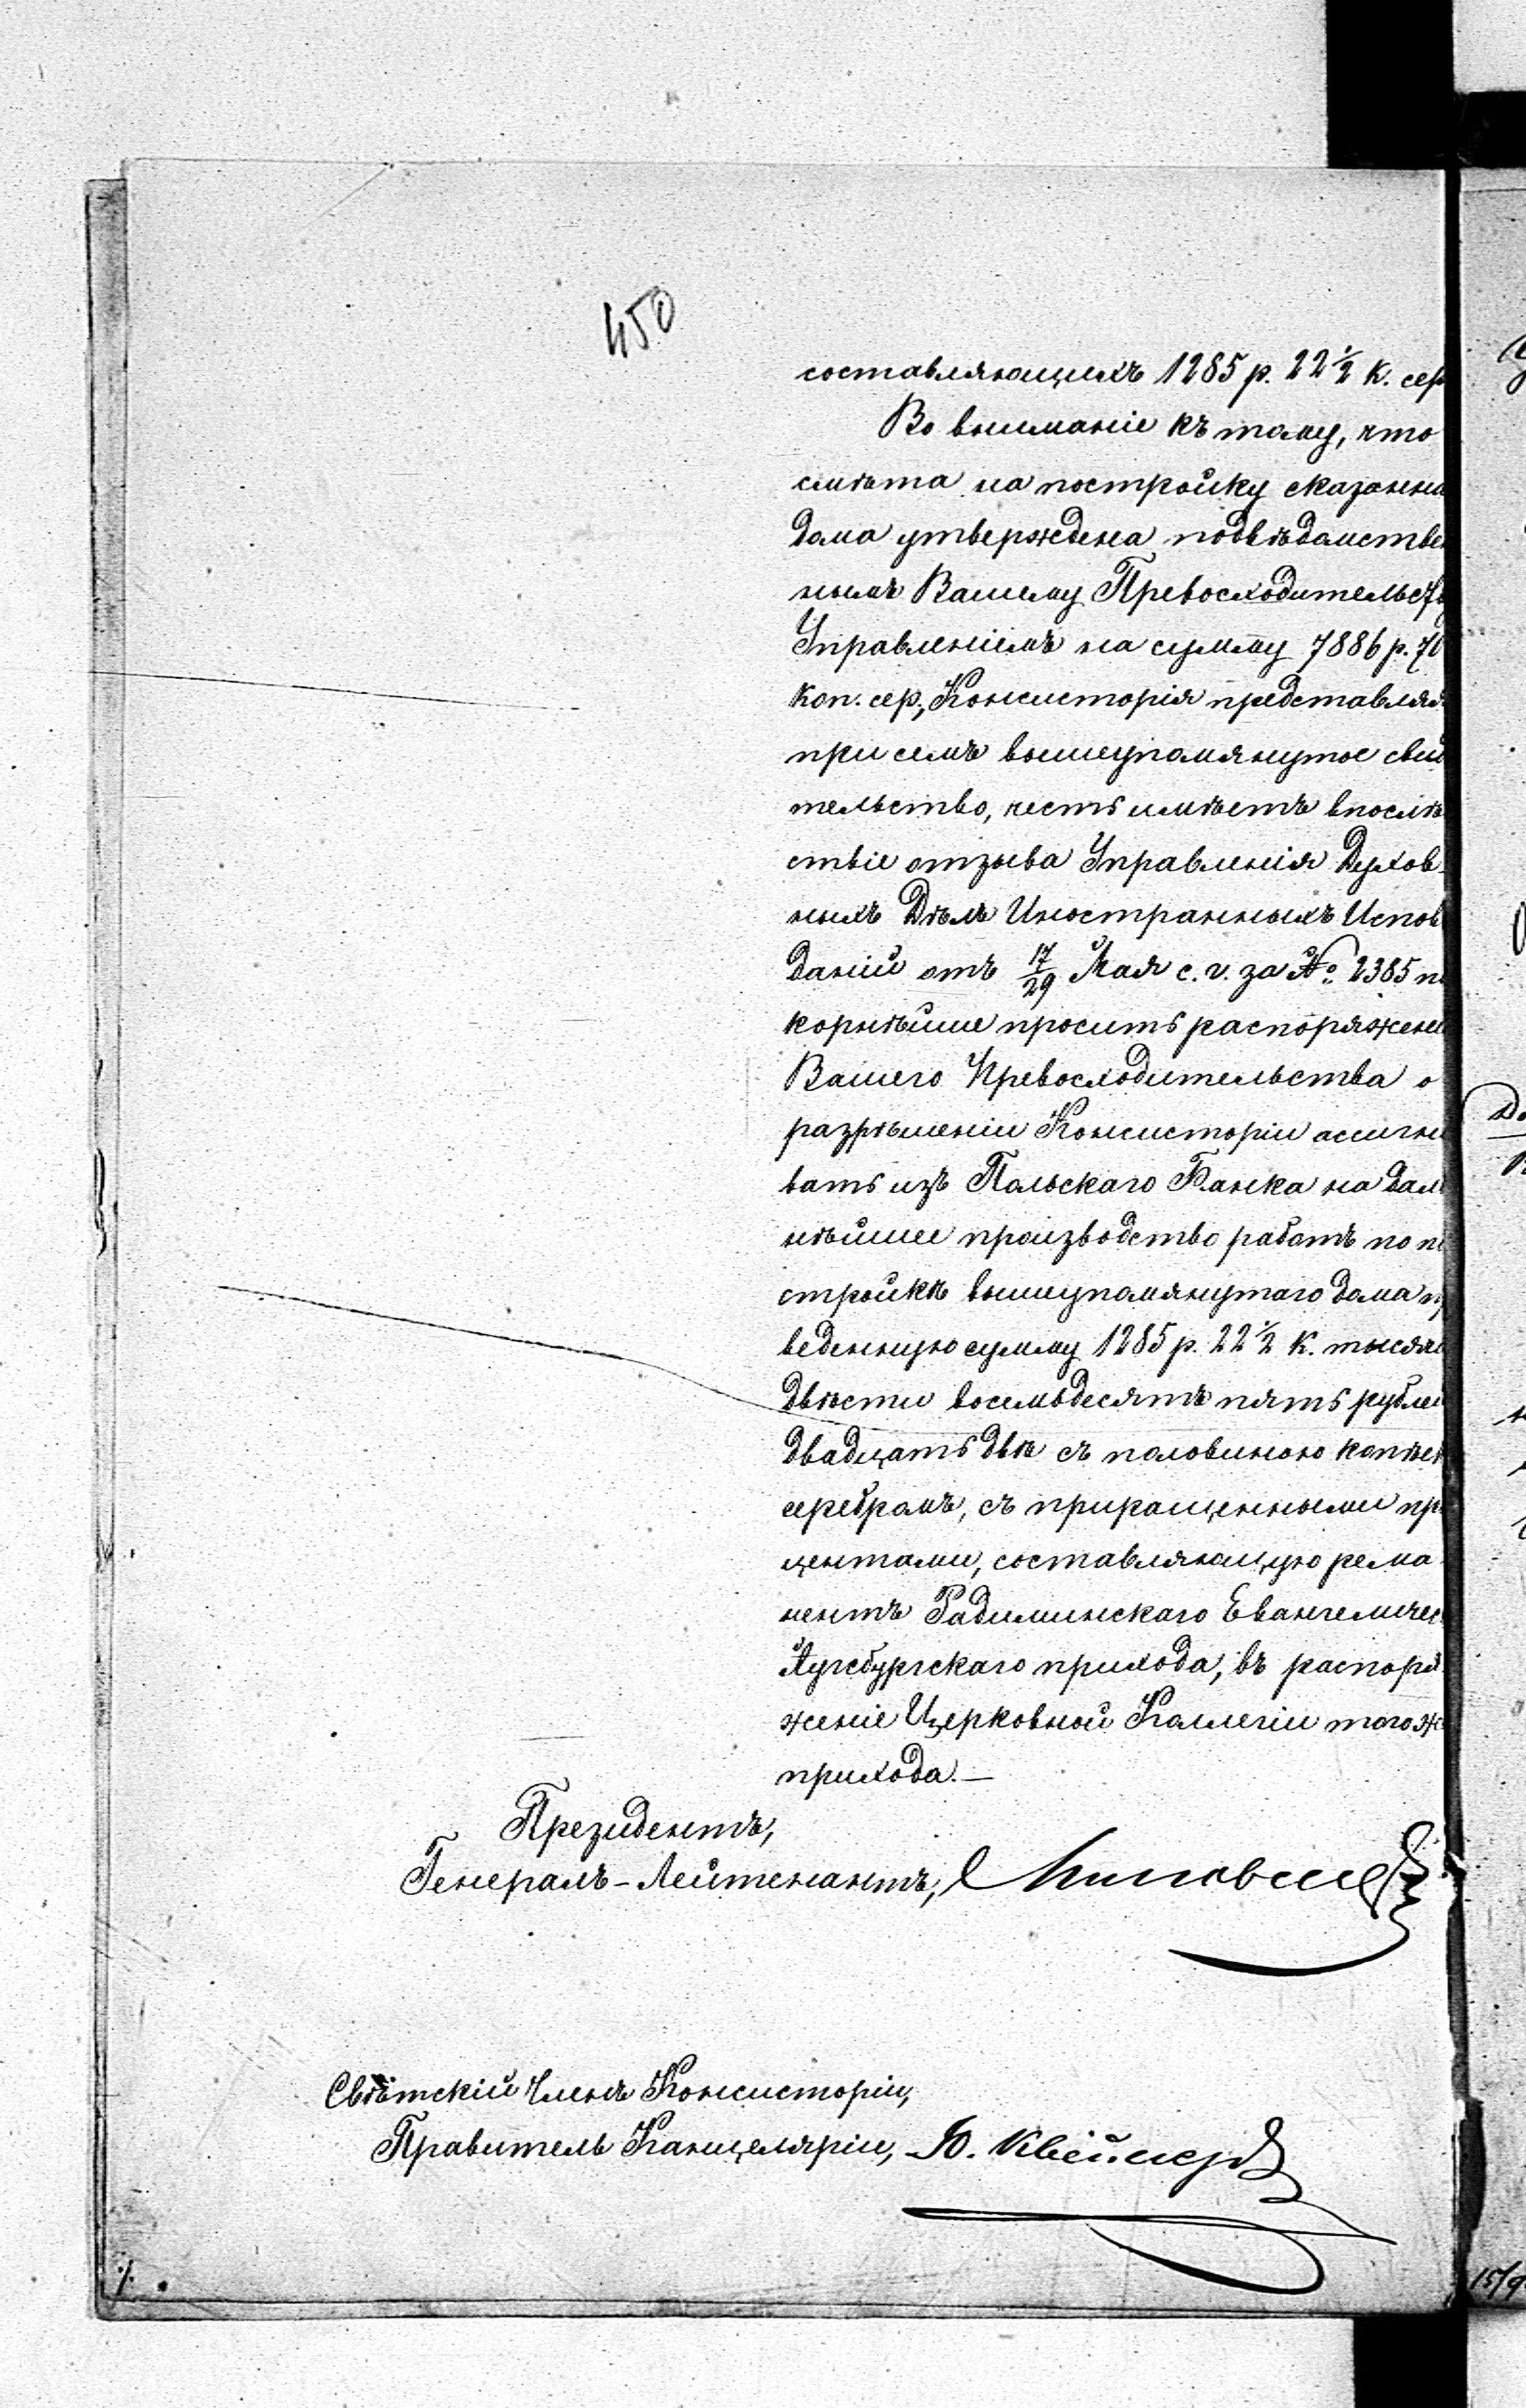 450
составляющихъ 1285 р. 22 1/2 к. сер
Во вниманіе къ тому, что
смѣта на постройку сказанна
дома утверждена подвѣдомствен
нымъ Вашему Превосходительству
Управленіемъ на сумму 7886 р. 70
коп. сер., Консисторія представляя
при семъ вышеупомянутое свид
тельство, честь имѣетъ впослѣд
ствіе отзыва Управленія Духов-
ныхъ Дѣлъ Иностранныхъ Испов
даній отъ 17/29 Мая с. г. за № 2385 по
корнѣйше просить распоряжені
Вашего Превосходительства о
разрѣшеніи Консисторіи ассигно
вать изъ Польскаго Банка на даль
нѣйшее производство работъ по по
стройкѣ вышеупомянутаго дома пр
веденную сумму 1285 р. 22 1/2 к. тысяч
двѣсти восемьдесятъ пять рублей
двадцать двѣ съ половиною копѣек
серебромъ, съ приращенными про
центами, составляющую рема-
нентъ Радиминскаго Евангеличес
Аугсбургскаго прихода, въ распоря-
женіе Церковной Коллегіи того же
прихода.—
Президентъ,
Генералъ-Лейтенантъ,
Свѣтскій Членъ Консисторіи,
Правитель Канцеляріи, Ю.
15/9